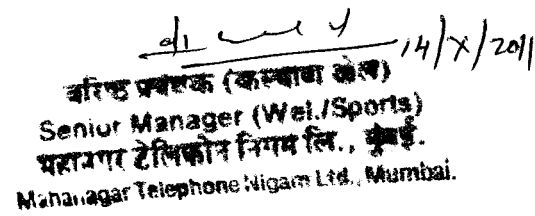 14/X/2011
वरिष्ठ प्रबंधक (कल्याण खेल)
Senior Manager (Wel./Sports)
महानगर टेलिफोन निगम लि., मुंबई.
Mahanagar Telephone Nigam Ltd., Mumbai.